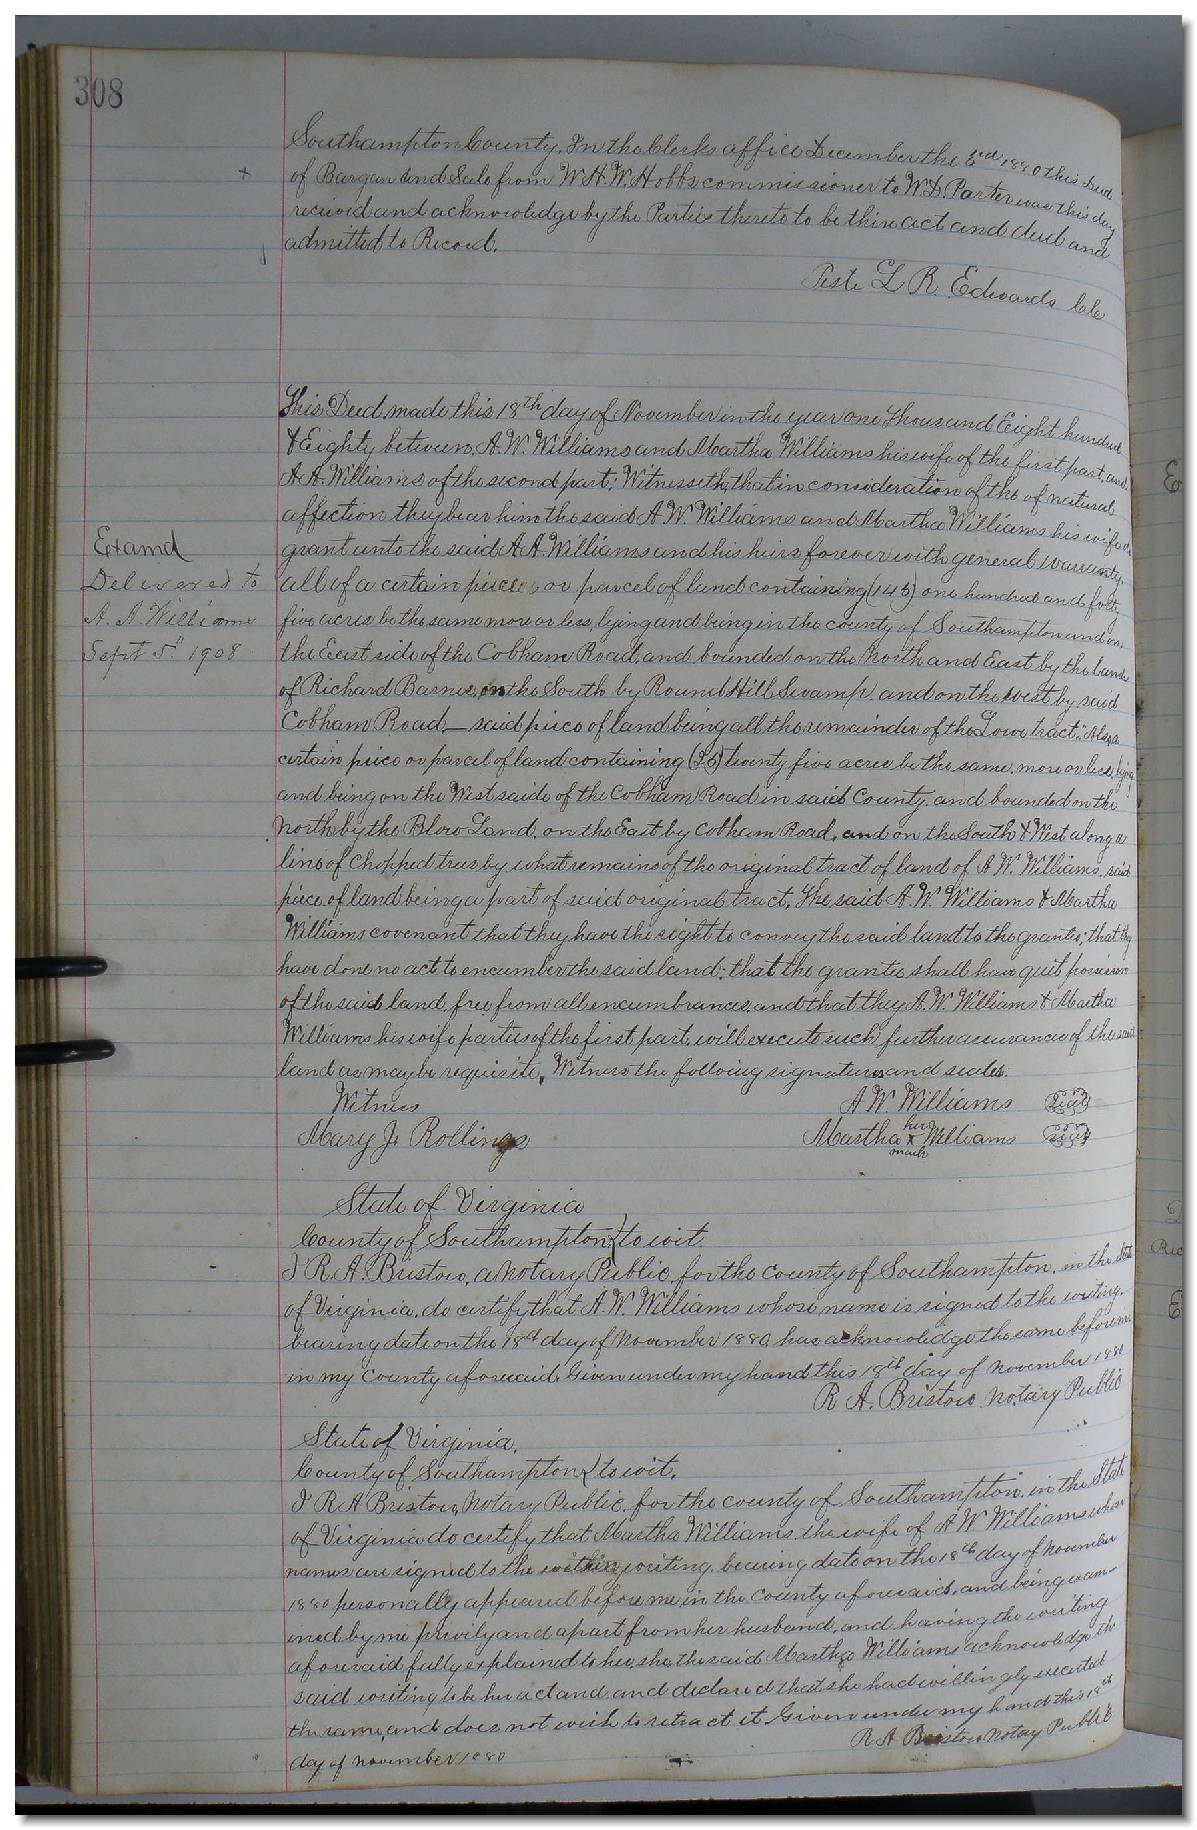 308
Southampton County. In the Clerks office December the 3rd 1880 this deed
of Bargan and Sale from W.H.W. Hobbs commissioner to W.D. Parker was this day
received and acknowledge by the Parties thereto to be thire act and deed and
admitted to Record.
Teste L R. Edwards Clc
This Deed made this 18th day of November in the year one Thousand Eight hundred
& Eighty between A.W. Williams and Martha Williams his wife of the first part, and
A.A. Williams of the second part: Witnesseth, that in consideration of the of natural
affection they bear him the said A.W. Williams and Martha Williams his wife
grant unto the said A A. Williams and his heirs forever with general warrenty.
all of a certain piece or parcel of land containing (145) one hundred and forty
five acres be the same more or less, lying and being in the county of Southampton and on
the East side of the Cobham Road, and bounded on the North and East by the lands
of Richard Barnes, on the South by Round Hill Swamp and on the west by said
Cobham Road,— said piece of land being all the remainder of the Lowe tract; Also a
certain piece or parcel of land containing (25) twenty five acres be the same, more or less, lying
and being on the West saide of the Cobham Road in said County, and bounded on the
North by the Blow Land, on the East by Cobham Road, and on the South & West along a
line of Chopped trees by what remains of the original tract of land of A.W. Williams, said
piece of land being a part of said original tract, The said A.W. Williams & Martha
Williams covenant that they have the right to convey the said land to the grantee; that they
have done no act to encumber the said land; that the grantee shall have quit possesion
of the said land, free from all encumbrances, and that they A.W. Williams & Martha
Williams his wife parties of the first part, will execute such further assurances of the said
land as may be requisite, Witness the following signatures and seales.
Witness A W. Williams Seal
Mary J. Rollings Martha her x mark Williams Seal
State of Virginia
County of Southampton } to wit.
I R A. Bristow, a Notary Public, for the county of Southampton, in the State
of Virginia, do certify that A.W. Williams whose name is signed to the writing,
bearing date on the 18th day of November 1880, has acknowledge the same before me
in my County aforesaid. Given under my hand this 18th day of November 1880
R A. Bristow Notary Public
State of Virginia,
County of Southampton } to wit,
I R A Bristow, Notary Public, for the county of Southampton, in the State
of Virginia do certify that Martha Williams the wife of A W Williams whose
names are signed to the within writing, bearing date on the 18th day of November
1880 personally appeared before me, in the County aforesaid, and being exam-
ined by me privily and apart from her husband, and having the writing
aforesaid fully explained to her, she, the said Martha Williams acknowledge the
said writing to be her act and and declared that she had willingly executed
the same, and does not wish to retract it Given under my hand this 18th
day of November 1880 R A Bristow Notary Public
Examd
Delivered to
A. A. Williams
Sept 5" 1908